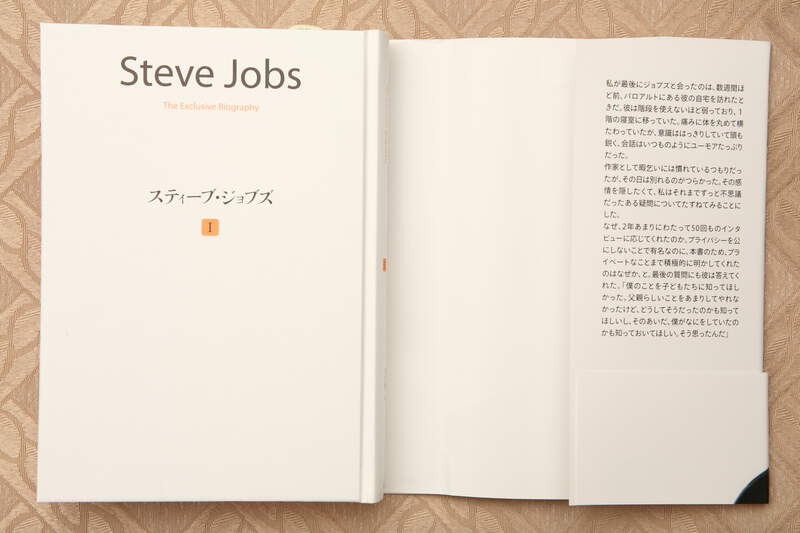 Steve Jobs
The Exclusive Biography
スティーブ・ジョブズ
I
私が最後にジョブズと会ったのは、数週間ほ
ど前、パロアルトにある彼の自宅を訪れたと
きだ。彼は階段を使えないほど弱っており、1
階の寝室に移っていた。痛みに体を丸めて横
たわっていたが、意識ははっきりしていて頭も
鋭く、会話はいつものようにユーモアたっぷり
だった。
作家として暇乞いには慣れているつもりだっ
たが、その日は別れるのがつらかった。その感
情を隠したくて、私はそれまでずっと不思議
だったある疑問についてたずねてみることに
した。
なぜ、2年あまりにわたって50回ものインタ
ビューに応じてくれたのか。プライバシーを公
にしないことで有名なのに、本書のため、プラ
イベートなことまで積極的に明かしてくれた
のはなぜか、と。最後の質問にも彼は答えてく
れた。「僕のことを子どもたちに知ってほし
かった。父親らしいことをあまりしてやれな
かったけど、どうしてそうだったのかも知って
ほしいし、そのあいだ、僕がなにをしていたの
かも知っておいてほしい。そう思ったんだ」